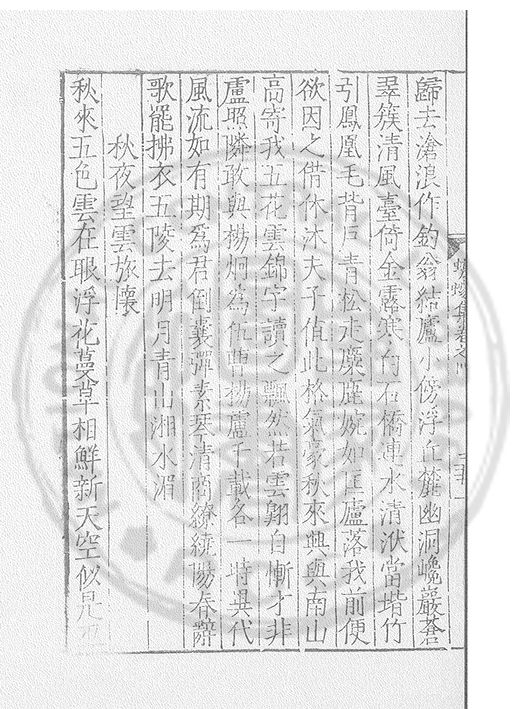 歸去滄浪作釣翁結廬小傍浮丘麓幽洞巉巖蒼
翠簇清風臺倚金露寒白石橋連水清洑當堦竹
引鳳凰毛背戶青松走麋麈婉如匡廬落我前便
欲因之借休沐夫子值此格氣豪秋來興與南山
高寄我五花雲錦字讀之飄然若雲翱自慚才非
盧照隣敢與楊炯為伍曹楊盧千載名一時異代
風流如有期為君倒囊彈素琴清商繚繞陽春辭
歌罷拂衣五陵去明月青山湘水湄
秋夜望雲旅懷
秋來五色雲在眼浮花蔓草相鮮新天空似是